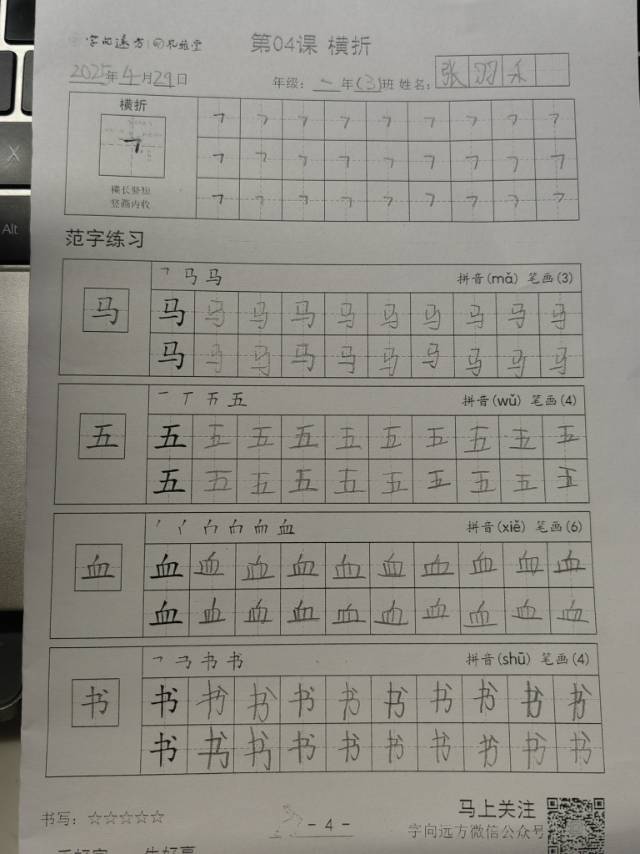 字向远方
第04课 横折
2025年4月29日 年级：一年(3)班 姓名：张羽禾
横折
横长竖短
竖画内收
范字练习
㇕ 马 马 拼音(mǎ) 笔画(3)
马 马 马 马 马 马 马 马 马 马 马
马 马 马 马 马 马 马 马 马 马
一 丅 五 五 拼音(wǔ) 笔画(4)
五 五 五 五 五 五 五 五 五 五 五
五 五 五 五 五 五 五 五 五 五
血 拼音(xiě) 笔画(6)
血 血 血 血 血 血 血 血 血 血 血
血 血 血 血 血 血 血 血 血 血
书 书 拼音(shū) 笔画(4)
书 书 书 书 书 书 书 书 书 书 书
书 书 书 书 书 书 书 书 书 书
书写：☆☆☆☆☆
- 4 -
马上关注
字向远方微信公众号
X
Alt